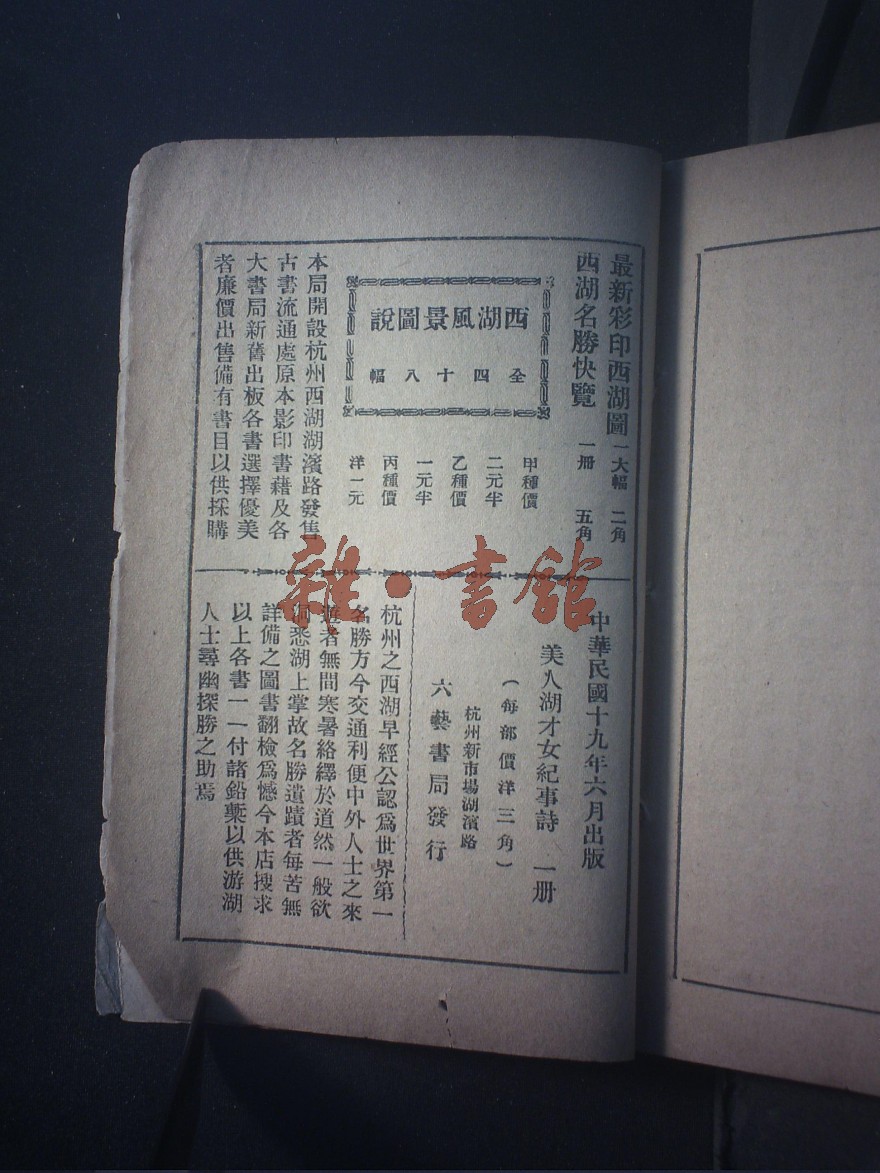 最新彩印西湖圖 一大幅 二角
西湖名勝快覽 一册 五角
西湖風景圖說
全四十八幅
甲種價
二元半
乙種價
一元半
丙種價
洋一元
本局開設杭州西湖湖濱路發售
古書流通處原本影印書藉及各
大書局新舊出板各書選擇優美
者廉價出售備有書目以供採購
中華民國十九年六月出版
美人湖才女紀事詩 一册
（每部價洋三角）
杭州新市場湖濱路
六藝書局發行
杭州之西湖早經公認爲世界第一
名勝方今交通利便中外人士之來
遊者無間寒暑絡繹於道然一般欲
洞悉湖上掌故名勝遺蹟者每苦無
詳備之圖書翻檢爲憾今本店搜求
以上各書一一付諸鉛槧以供游湖
人士尋幽探勝之助焉
雜·書館